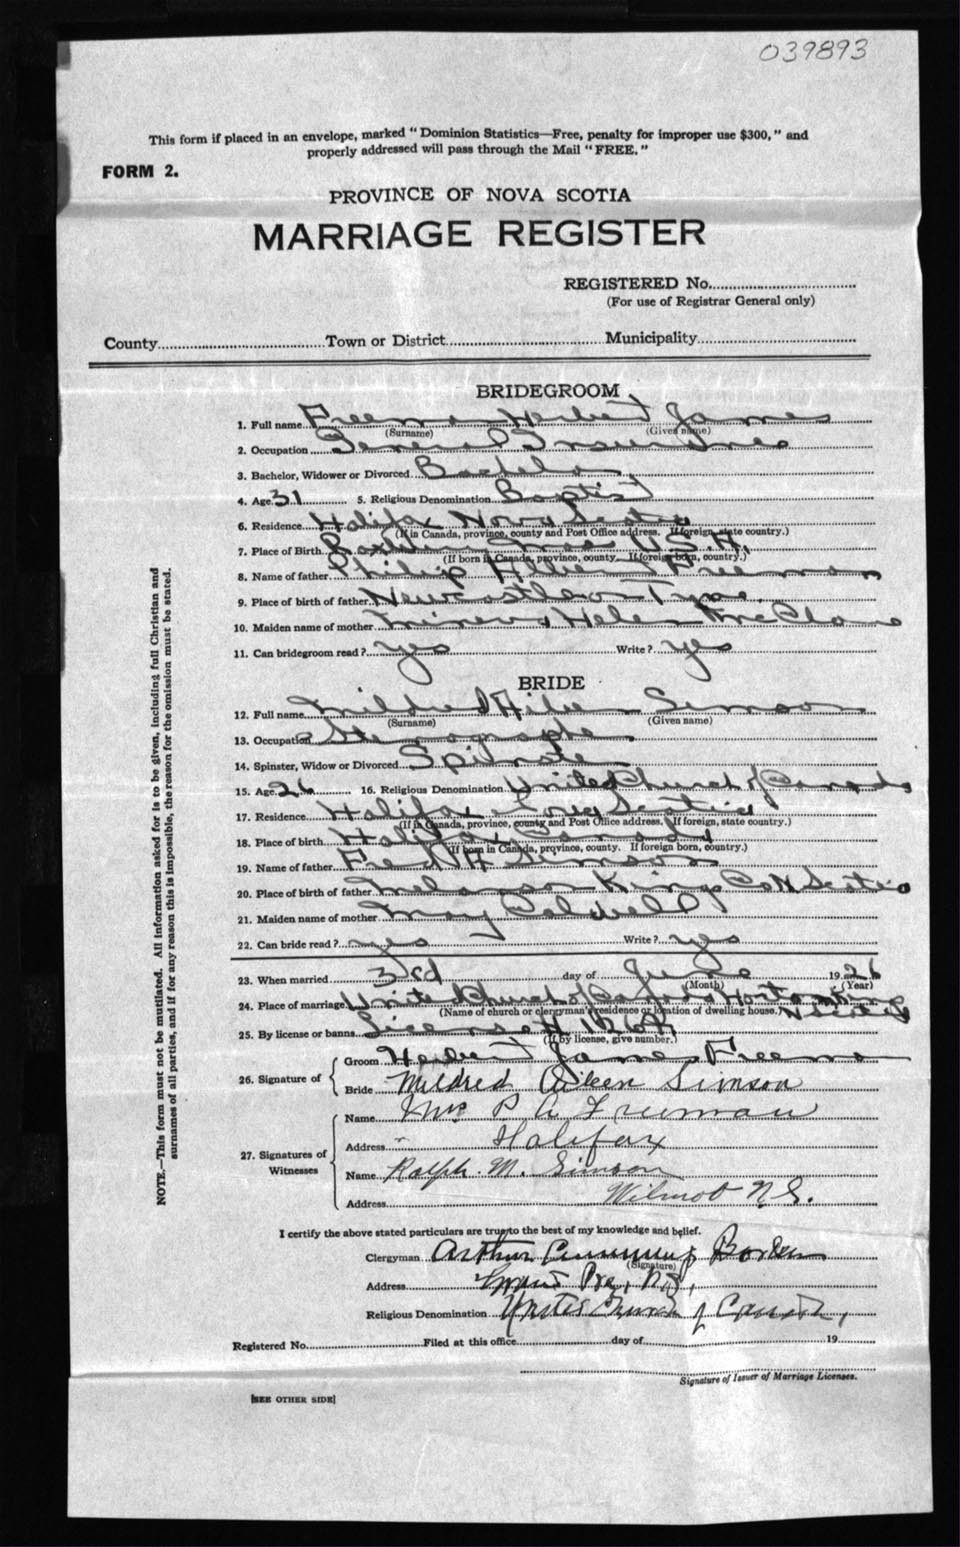 039893
This form if placed in an envelope, marked "Dominion Statistics—Free, penalty for improper use $300," and
properly addressed will pass through the Mail "FREE."
FORM 2.
PROVINCE OF NOVA SCOTIA
MARRIAGE REGISTER
REGISTERED No.
(For use of Registrar General only)
County Town or District Municipality
BRIDEGROOM
1. Full name Freeman Herbert James
(Surname) (Given name)
2. Occupation General Insurance
3. Bachelor, Widower or Divorced Bachelor
4. Age 31 5. Religious Denomination Baptist
6. Residence Halifax Nova Scotia
(If in Canada, province, county and Post Office address. If foreign, state country.)
7. Place of Birth Roxbury Mass U.S.A.
(If born in Canada, province, county. If foreign born, country.)
8. Name of father Philip Albert Freeman
9. Place of birth of father Newcastle on Tyne
10. Maiden name of mother Minerva Helen
11. Can bridegroom read? yes Write? yes
BRIDE
12. Full name Mildred Aileen Simson
(Surname) (Given name)
13. Occupation Stenographer
14. Spinster, Widow or Divorced Spinster
15. Age 26 16. Religious Denomination United Church of Canada
17. Residence Halifax Nova Scotia
(If in Canada, province, county and Post Office address. If foreign, state country.)
18. Place of birth Halifax Canada
(If born in Canada, province, county. If foreign born, country.)
19. Name of father Fred H Simson
20. Place of birth of father Melanson Kings Co N Scotia
21. Maiden name of mother May Caldwell
22. Can bride read? yes Write? yes
23. When married 3rd day of June 1926
(Month) (Year)
24. Place of marriage United Church of Canada Horton Kings
(Name of church or clergyman's residence or location of dwelling house.) N Scotia
25. By license or banns License
(If by license, give number.)
26. Signature of
Groom Herbert James Freeman
Bride Mildred Aileen Simson
27. Signatures of
Witnesses
Name Mrs P. A. Freeman
Address Halifax
Name Ralph. M. Simson
Address Wilmot N.S.
I certify the above stated particulars are true to the best of my knowledge and belief.
Clergyman Arthur Cumming Borden
(Signature)
Address Grand Pre, N.S.
Religious Denomination United Church of Canada,
Registered No. Filed at this office day of 19
Signature of Issuer of Marriage Licenses.
[SEE OTHER SIDE]
NOTE.—This form must not be mutilated. All information asked for is to be given, including full Christian and
surnames of all parties, and if for any reason this is impossible, the reason for the omission must be stated.